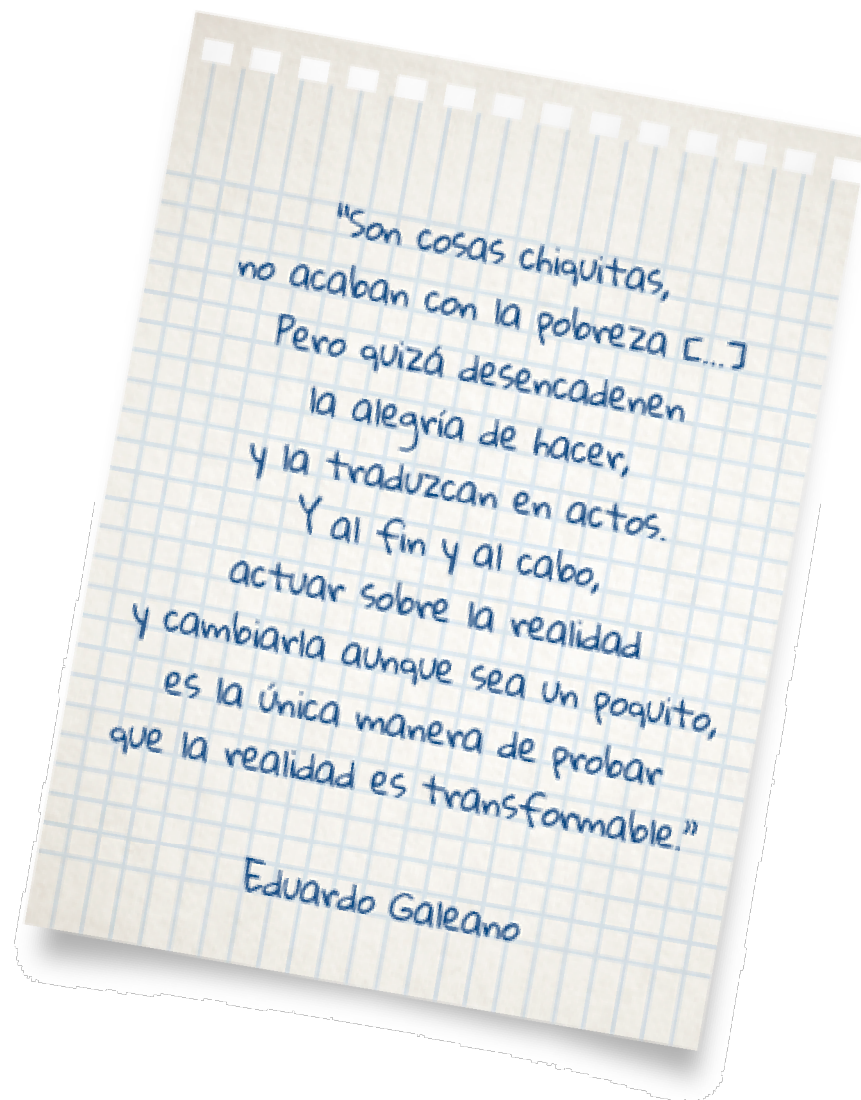 "Son cosas chiquitas,
no acaban con la pobreza [...]
Pero quizá desencadenen
la alegría de hacer,
y la traduzcan en actos.
Y al fin y al cabo,
actuar sobre la realidad
y cambiarla aunque sea un poquito,
es la única manera de probar
que la realidad es transformable."
Eduardo Galeano